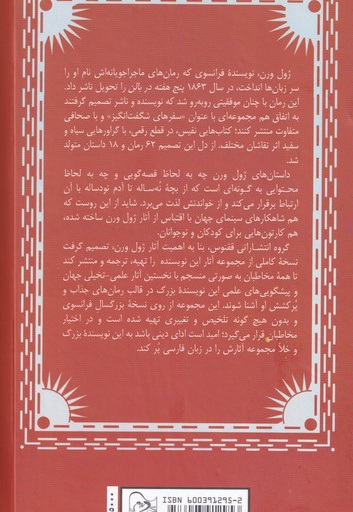 ژول ورن، نویسندهٔ فرانسوی که رمان‌های ماجراجویانه‌اش نام او را
سر زبان‌ها انداخت، در سال ۱۸۶۳ پنج هفته در بالن را تحویل ناشر داد.
این رمان با چنان موفقیتی روبه‌رو شد که نویسنده و ناشر تصمیم گرفتند
به اتفاق هم مجموعه‌ای با عنوان «سفرهای شگفت‌انگیز» و با صحافی
متفاوت منتشر کنند؛ کتاب‌هایی نفیس، در قطع رقعی، با گراورهایی سیاه و
سفید اثر نقاشان مختلف. از دل این تصمیم ۶۲ رمان و ۱۸ داستان متولد
شد.
داستان‌های ژول ورن چه به لحاظ قصه‌گویی و چه به لحاظ
محتوایی به گونه‌ای است که از بچهٔ نه‌ساله تا آدم نودساله با آن
ارتباط برقرار می‌کند و از خواندنش لذت می‌برد. شاید از این روست که
هم شاهکارهای سینمای جهان با اقتباس از آثار ژول ورن ساخته شده،
هم کارتون‌هایی برای کودکان و نوجوانان.
گروه انتشاراتی ققنوس، بنا به اهمیت آثار ژول ورن، تصمیم گرفت
نسخهٔ کاملی از مجموعه آثار این نویسنده را تهیه، ترجمه و منتشر کند
تا همهٔ مخاطبان به صورتی منسجم با نخستین آثار علمی-تخیلی جهان
و پیشگویی‌های علمی این نویسندهٔ بزرگ در قالب رمان‌های جذاب و
پُرکشش او آشنا شوند. این مجموعه از روی نسخهٔ بزرگسال فرانسوی
و بدون هیچ گونه تلخیص و تغییری تهیه شده است و در اختیار
مخاطبان قرار می‌گیرد؛ امید است ادای دینی باشد به این نویسندهٔ بزرگ
و خلأ مجموعه آثارش را در زبان فارسی پُر کند.
ISBN 600391295-2